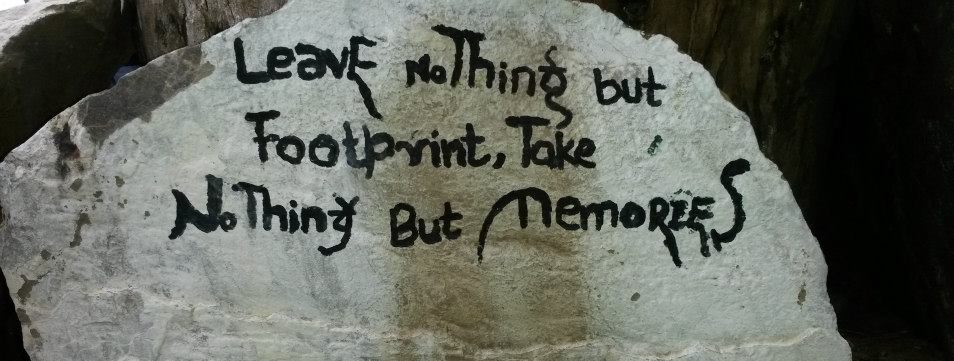 Leave NoThing but
FootPrint, Take
NoThing But MemoRIES